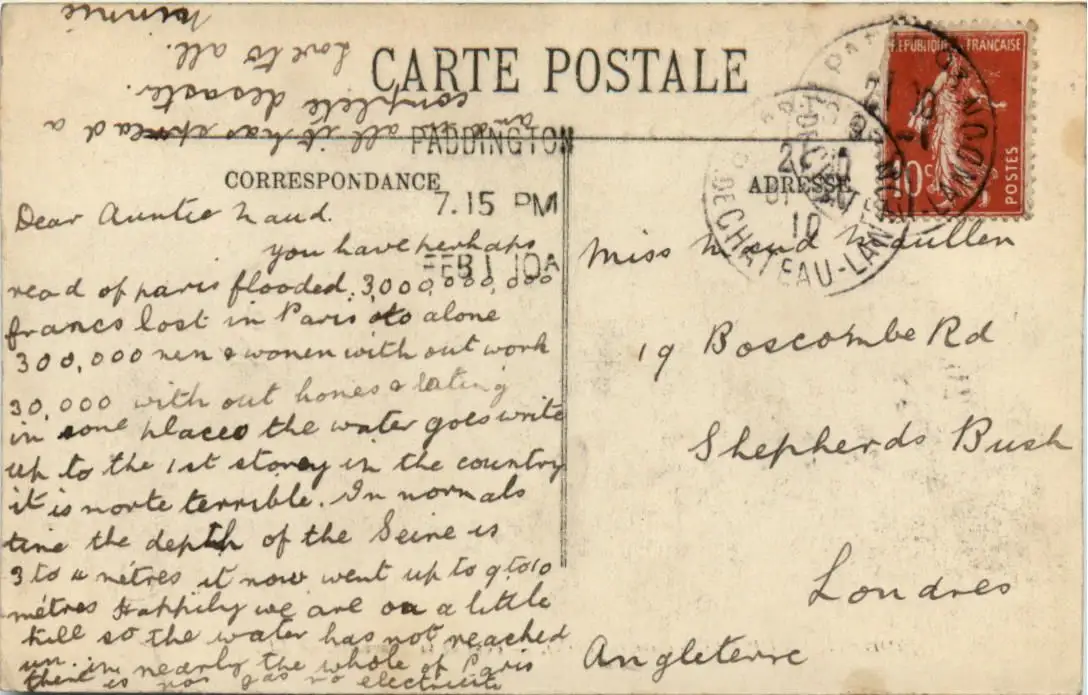 CARTE POSTALE
CORRESPONDANCE
ADRESSE
PADDINGTON
7.15 PM
FEB 1 10A
REPUBLIQUE FRANÇAISE
10c
POSTES
Dear Auntie Maud.
you have perhaps
read of paris flooded. 3,000,000,000
francs lost in Paris alone
300,000 men & women with out work
30,000 with out homes & eating
in some places the water goes write
up to the 1st storey in the country
it is morte terrible. In normals
time the depth of the Seine is
3 to 4 métres it now went up to 9 to 10
métres Happily we are on a little
hill so the water has not reached
un. in nearly the whole of Paris
there is not gas no electricité
and in all it has spread a
complete desaster.
Love to all.
Winnie
Miss Maud McCullen
19 Boscombe Rd
Shepherds Bush
Londres
Angleterre